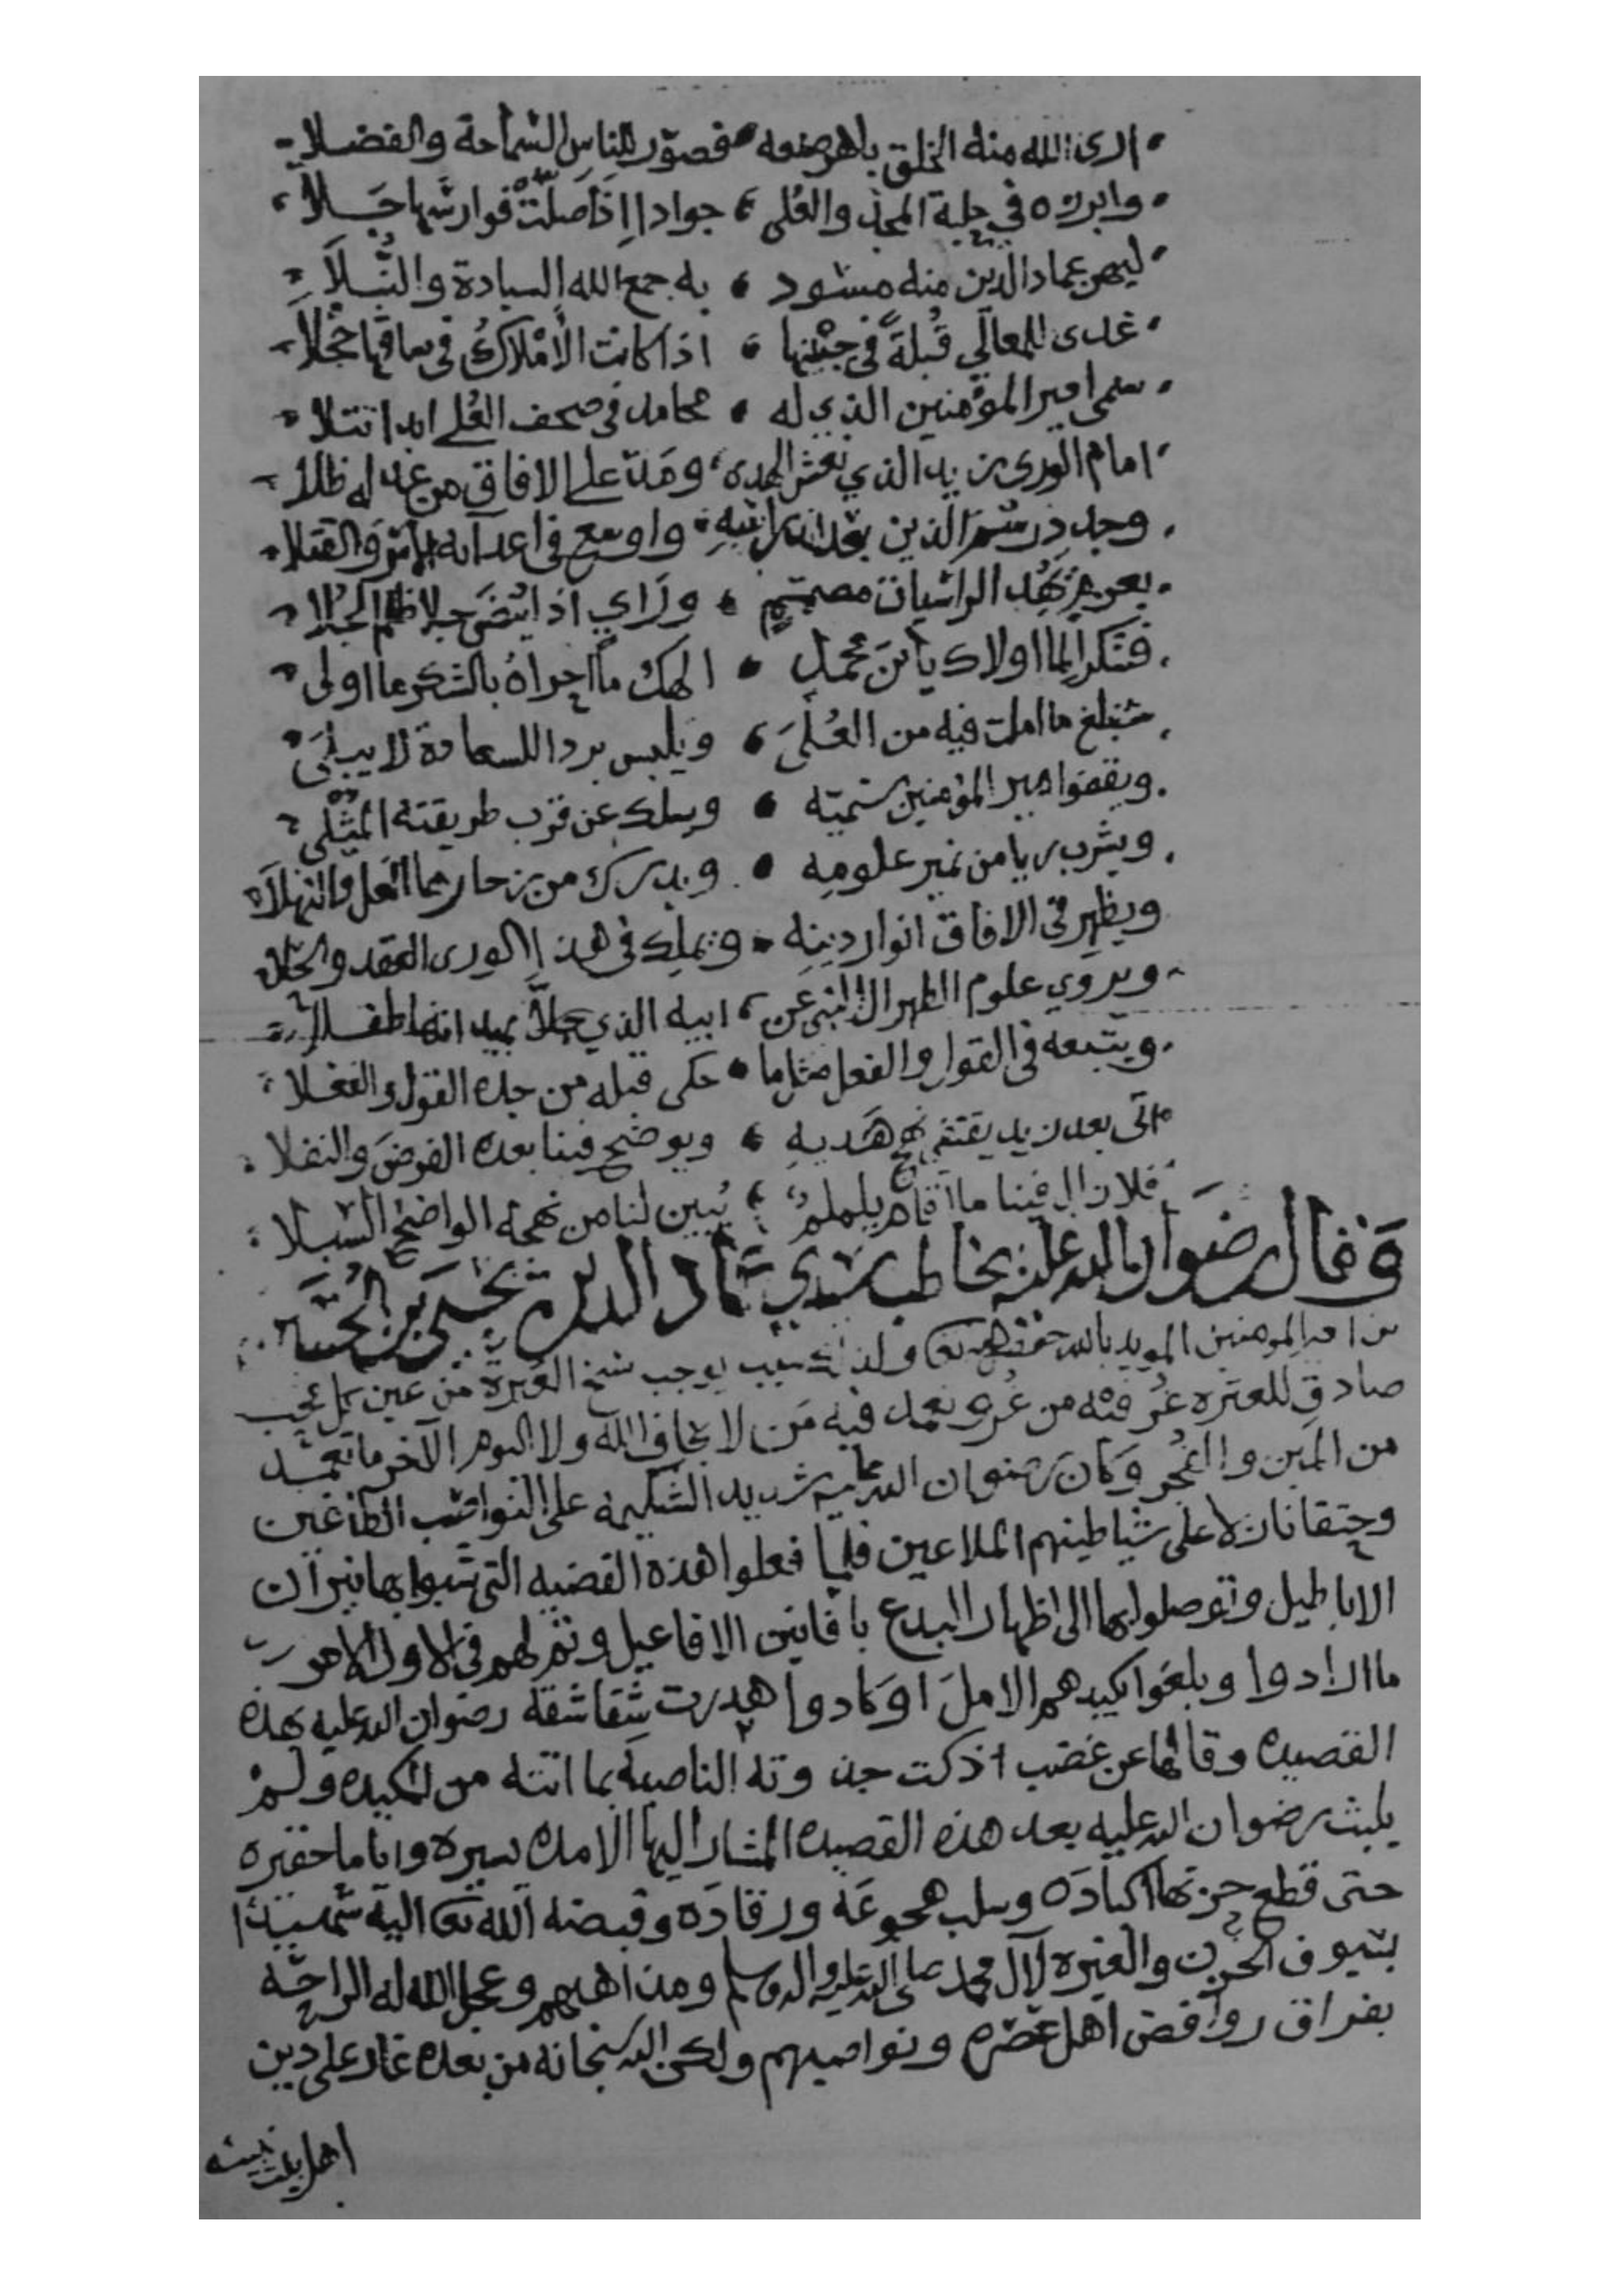 ارى الله منه الخلق باهر صنعه فصور للناس السماحة والفضلا
وابرزه في حلبة المجد والعلى جوادا اذا صلت فوارسها جلا
ليهن عماد الدين منه مسود به جمع الله السيادة والنبلا
غدى للمعالي قبلة في جبينها اذا كانت الأملاك في ساقها حجلا
سمي امير المؤمنين الذي له محامد في صحف العلى ابدا تتلا
امام الورى زيد الذي نعش الهدى ومد على الافاق من عدله ظلا
وجدد رسم الدين بعد اندراسه واوسع في اعدآئه الاسر والقتلا
بعزم يهد الراسيات مصمم وراي اذا ينضى جلا ظلم الجلا
فشكرا لما اولاك يابن محمد الهك ما احراه بالشكر ما اولى
ستبلغ ما املت فيه من العلى ويلبس بردا للسعادة لا يبلى
ويقفوا امير المؤمنين سميه ويسلك عن قرب طريقته المثلى
ويشرب ريا من نمير علومه ويدرك من زخارها العل والنهلا
ويظهر في الافاق انوار دينه ويملك في هذا الورى العقد والحلا
ويروي علوم الطهر عن ابيه الذي جلا بميدانها طفلا
ويتبعه في القول والفعل مثلما حكى قبله من جده القول والفعلا
اتى بعد زيد يقتفي نهج هديه ويوضح فينا بعده الفرض والنفلا
فلا زال فينا ما اقام يلملم يبين لنا من نهجه الواضح السبلا
وقال رضوان الله عليه يخاطب سيدي عماد الدين يحيى بن الحسين
بن امير المومنين المويد بالله حفظه الله تعالى ولذلك سبب يوجب سح العبرة من عين كل محب
صادق للعتره عرفته من عرف تعمد فيه من لا يخاف الله ولا اليوم الآخر ما تعمد
من المين والفجر وكان رضوان الله عليه شديد الشكيمه على النواصب الطاغين
وحتفا نازلا على شياطينهم الملاعين فلما فعلوا هذه القضيه التي شبوا بها نيران
الاباطيل وتوصلوا بها الى اظهار البدع بافانين الافاعيل وتم لهم في الاول الامر
ما ارادوا وبلغوا بكيدهم الامل او كادوا هدرت شقاشقه رضوان الله عليه بهذه
القصيده وقالها عن غضب اذكت جذوته الناصبه بما اتته من المكيده ولم
يلبث رضوان الله عليه بعد هذه القصيده المشار اليها الا مده يسيره واياما حقيره
حتى قطع حزنها اكباده وسلب هجوعه ورقاده وقبضه الله تعالى اليه شهيدا
بسيوف الحزن والغيره لآل محمد صلى الله عليه واله وسلم ومذاهبهم وعجل الله له الراحه
بفراق روافض اهل عصره ونواصبهم ولكن الله سبحانه من بعده غار على دين
اهل بيت نبيه